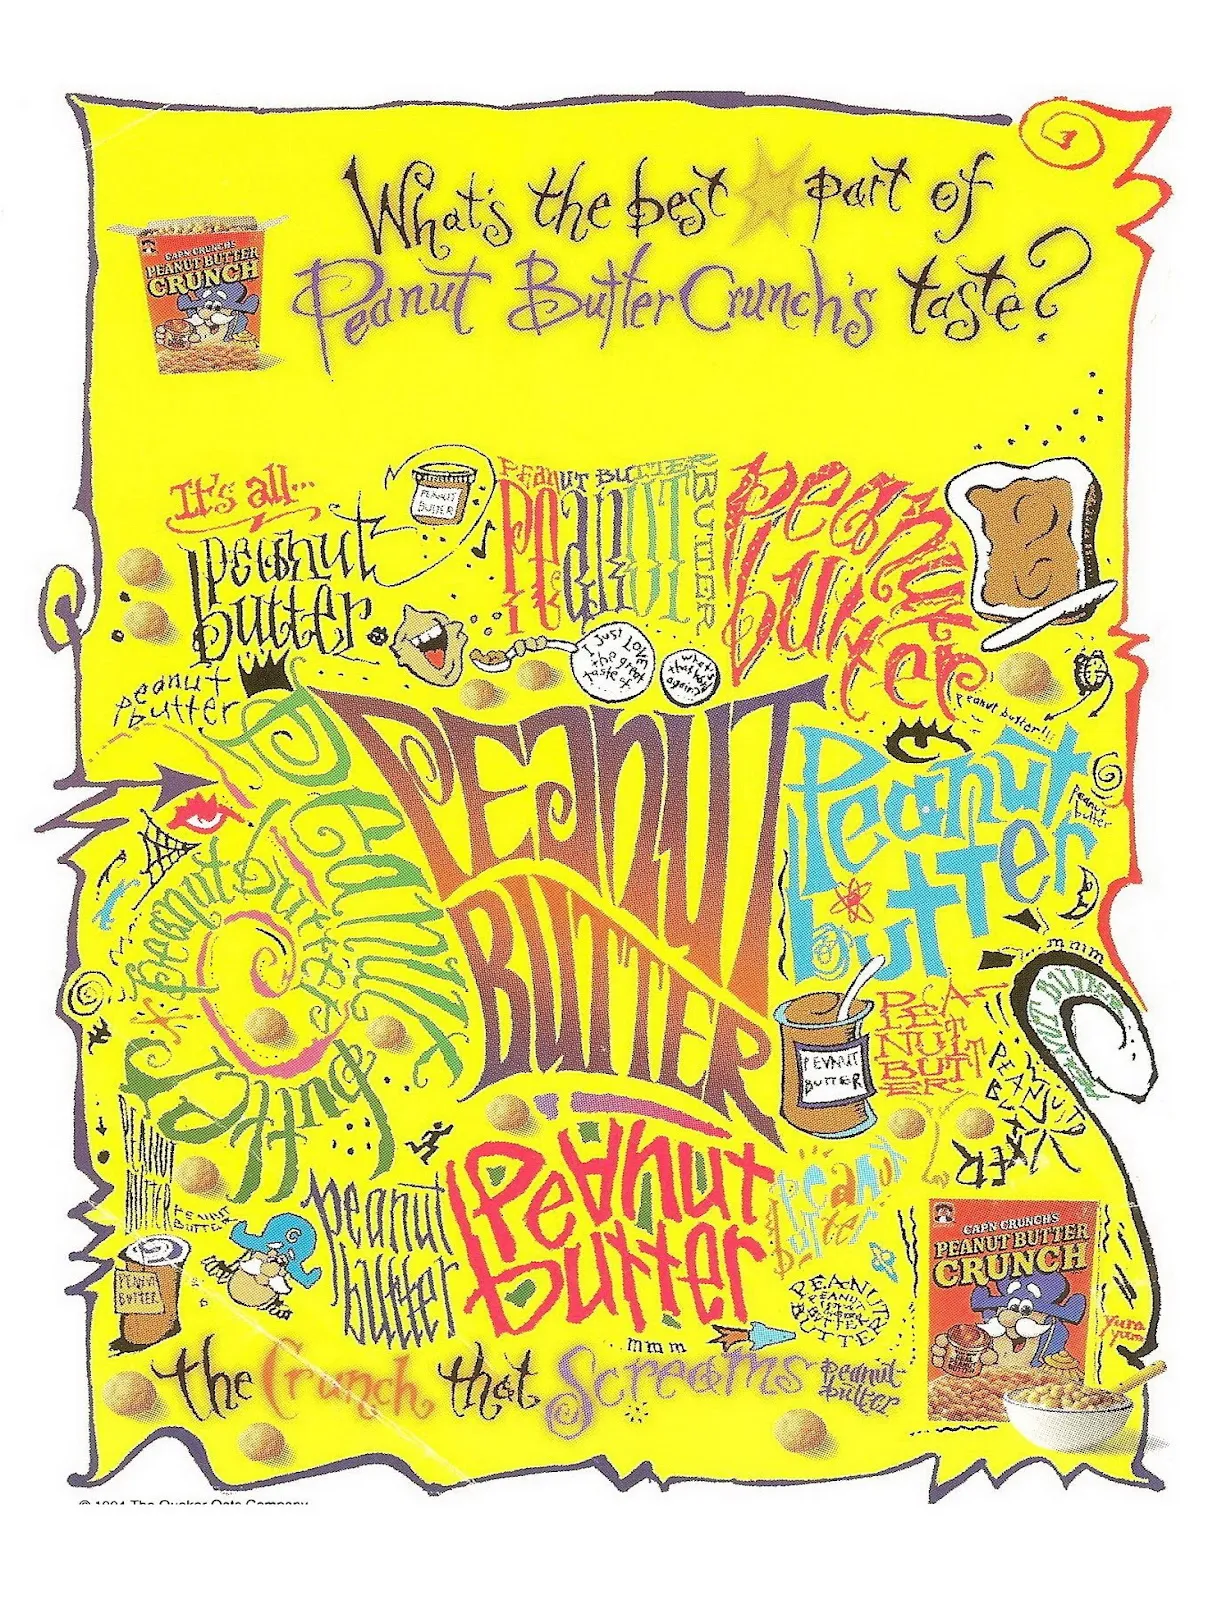 What's the best part of
Peanut Butter Crunch's taste?
CAP'N CRUNCH'S
PEANUT BUTTER
CRUNCH
It's all...
peanut
butter
PEANUT
BUTTER
PEANUT BUTTER
PEANUT
BUTTER
peanut
butter
I just LOVE
the great
taste of
what's
that word
again?
peanut
butter
peanut butter!!!
PEANUT
BUTTER
Peanut
butter
peanut
butter
Peanut
Butter
peanut
butter
mmm
PEANUT BUTTER
PEANUT
BUTTER
PEA
NUT
BUTT
ER
PEANUT
BUTTER
PEANUT
BUTTER
PEANUT
BUTTER
PEANUT
BUTTER
peanut
butter
Peanut
butter
peanut
butter
PEANUT
BUTTER
CAP'N CRUNCH'S
PEANUT BUTTER
CRUNCH
yum
yum
mmm
the Crunch that Screams
Peanut-
butter
© 1994 The Quaker Oats Company